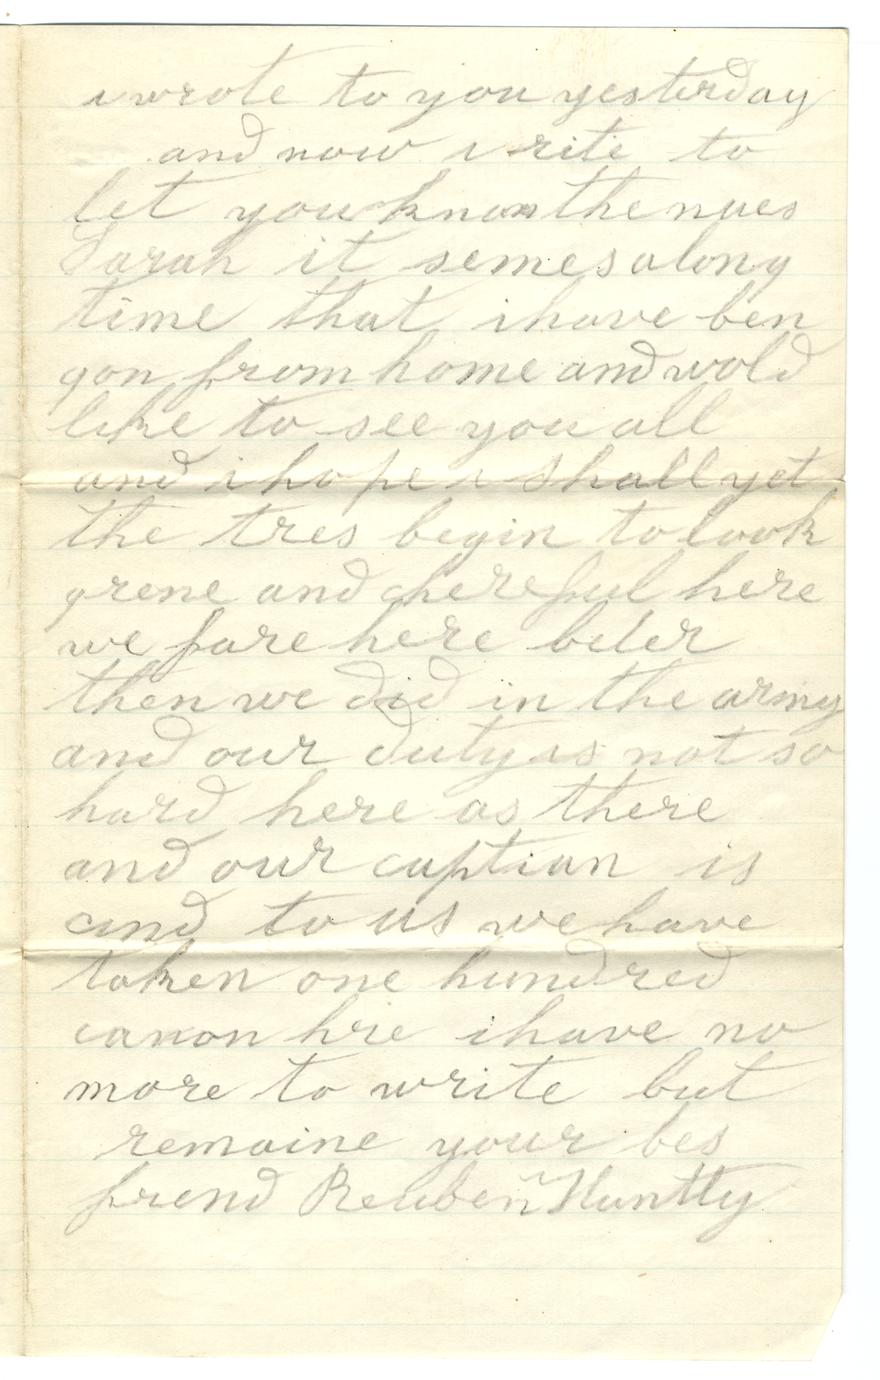 i wrote to you yesterday
and now i rite to
let you know the nues
Sarah it semes along
time that i have ben
gon from home and wold
like to see you all
and i hope i shall yet
the tres begin to look
grene and chereful here
we fare here beter
then we did in the army
and our duty is not so
hard here as there
and our captian is
cind to us we have
taken one hundred
canon hre i have no
more to write but
remaine your bes
frend Reuben Huntly